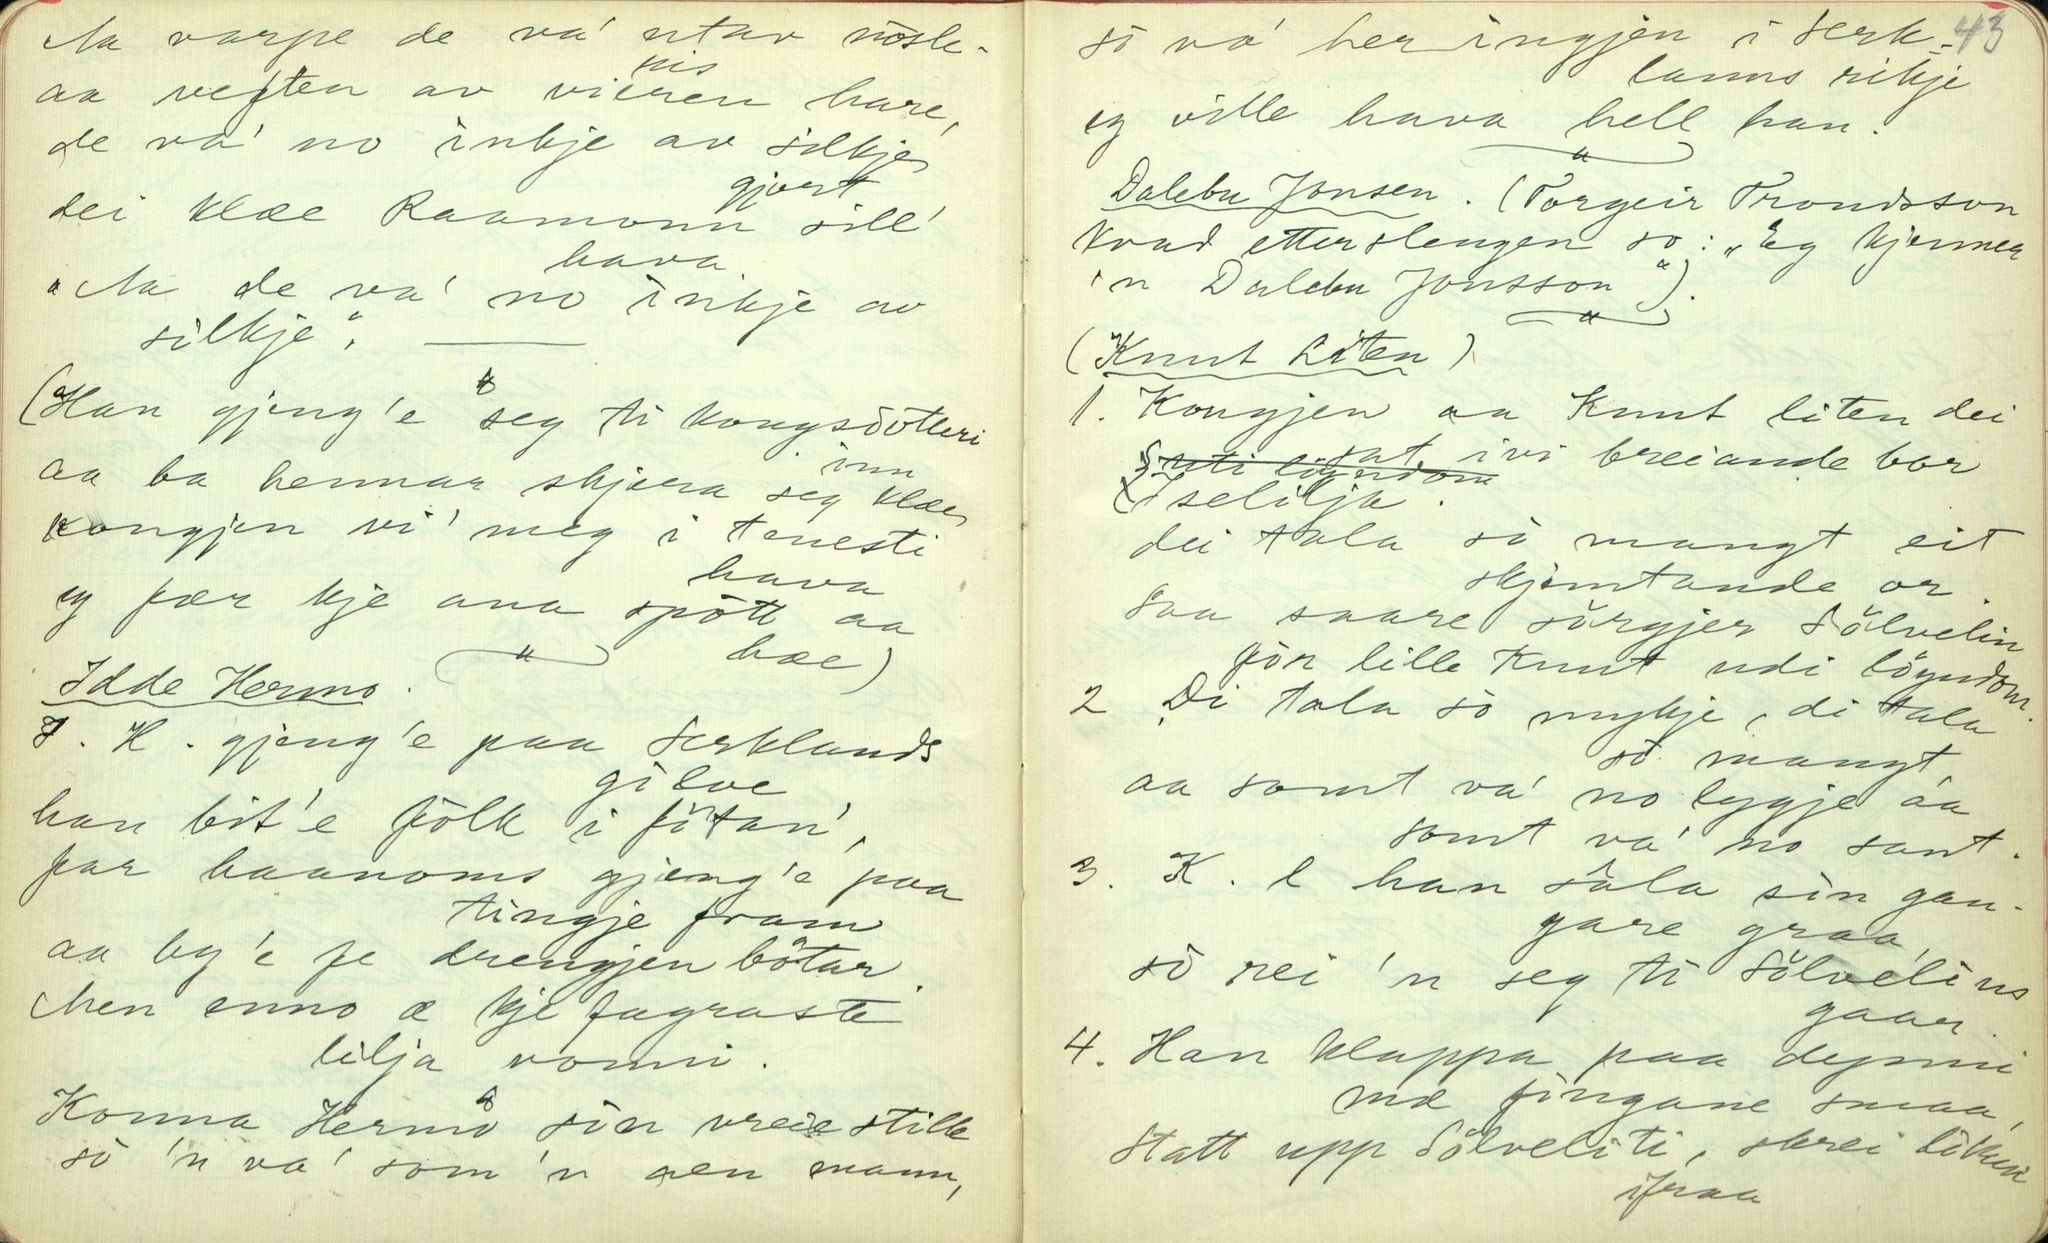 Aa varpe de va' utav nøsle-
kis
aa veften av vieren hare,
de va' no inkje av silkje
gjort
dei klæe Raamonn sill'
hava
"Aa de va' no inkje av
silkje".
(Han gjeng'e seg ti kongsdotteri
inn
aa ba hennar skjera seg klæe,
kongjen vi' meg i tenesti
hava
eg fær kje ana spott aa
hæ)
Idde Hermo.
I. H. gjeng'e paa Serklands
gilve
han bit'e folk i føtan',
far haanoms gjeng'e paa
tingje fram
aa by'e fe drengjen bøtar.
Men enno æ kje fagraste
lilja vonni.
Konna Hermo sin vreie stille
so 'n va' som 'n aen mann,
43
so va' her ingjen i Serk-
lanns rikje
eg ville hava hell han.
Dalebu Jonsen. (Torgeir Trondsson
kvad etterslengen so: "Eg kjenner
'n Dalebu Jonsson").
(Knut Liten)
1. Kongjen aa Knut liten dei
sat ivi breiande bor
I selilja.
dei tala so mangt eit
skjemtande or.
Saa saare sørgjer Sølvelin
før lille Knut udi løyndom.
2 Di tala so mykje, di tala
so mangt,
aa somt va' no lygje aa
somt va' no sant.
3. K. l han sala sin gan-
gare graa,
so rei 'n seg ti Sølvelins
gaar.
4. Han klappa paa dynni
mæ fingane smaa,
Statt upp Sølveliti, skrei likun
ifraa